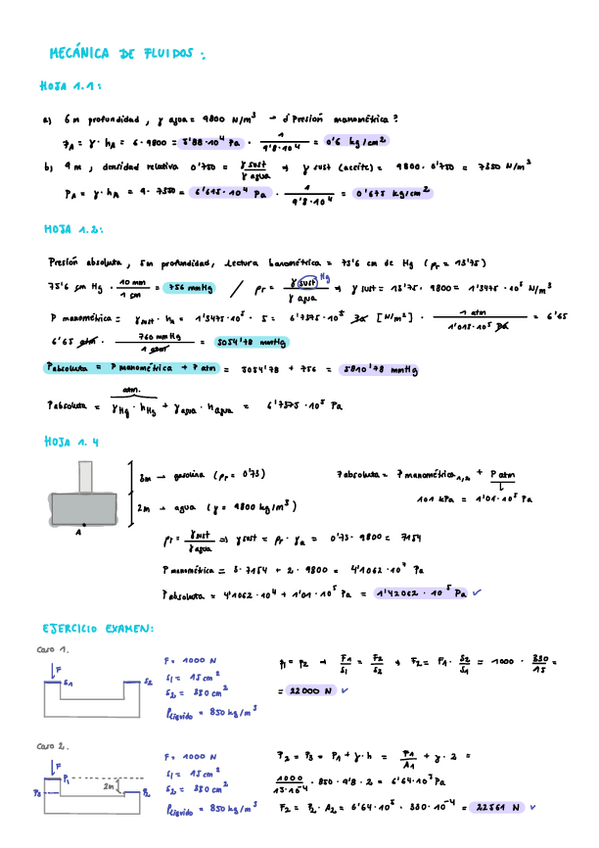 MECÁNICA DE FLUIDOS:
HOJA 1.1:
a) 6m profundidad, γ agua = 9800 N/m³ → ¿Presión manométrica?
PA = γ · hA = 6 · 9800 = 5'88·10⁴ Pa · 1/9'8·10⁴ = 0'6 kg/cm²
b) 9m, densidad relativa 0'750 = γ sust/γ agua → γ sust (aceite) = 9800 · 0'750 = 7350 N/m³
PA = γ · hA = 9 · 7350 = 6'615·10⁴ Pa · 1/9'8·10⁴ = 0'675 kg/cm²
HOJA 1.2:
Presión absoluta, 5m profundidad, Lectura barométrica = 75'6 cm de Hg (ρr = 13'75)
75'6 cm Hg · 10 mm/1 cm = 756 mmHg / ρr = γ sust Hg/γ agua → γ sust = 13'75 · 9800 = 1'3475·10⁵ N/m³
P manométrica = γsust · hA = 1'3475·10⁵ · 5 = 6'7375·10⁵ [N/m²] · 1 atm/1'013·10⁵ Pa = 6'65
6'65 atm · 760 mmHg/1 atm = 5054'78 mmHg
Pabsoluta = P manométrica + P atm = 5054'78 + 756 = 5810'78 mmHg
atm.
Pabsoluta = γHg · hHg + γagua · hagua = 6'7575·10⁵ Pa
HOJA 1.4
3m → gasolina (ρr = 0'73)
Pabsoluta = P manométrica1,2 + P atm
2m → agua (γ = 9800 kg/m³)
101 kPa = 1'01·10⁵ Pa
A
ρr = γsust/γagua ⇒ γsust = ρr · γa = 0'73 · 9800 = 7154
P manométrica = 3·7154 + 2·9800 = 4'1062·10⁴ Pa
Pabsoluta = 4'1062·10⁴ + 1'01·10⁵ Pa = 1'42062·10⁵ Pa ✓
EJERCICIO EXAMEN:
Caso 1.
F
S1
S2
F = 1000 N
S1 = 15 cm²
S2 = 330 cm²
ρliquido = 850 kg/m³
P1 = P2 → F1/S1 = F2/S2 → F2 = F1 · S2/S1 = 1000 · 330/15 =
= 22000 N ✓
Caso 2.
F
P1
P3
2m
P2
F = 1000 N
S1 = 15 cm²
S2 = 330 cm²
ρliquido = 850 kg/m³
P2 = P3 = P1 + γ·h = P1/A1 + γ·2 =
1000/15·10⁻⁴ · 850 · 9'8 · 2 = 6'64·10⁵ Pa
F2 = P2 · A2 = 6'64·10⁵ · 330·10⁻⁴ = 22561 N ✓